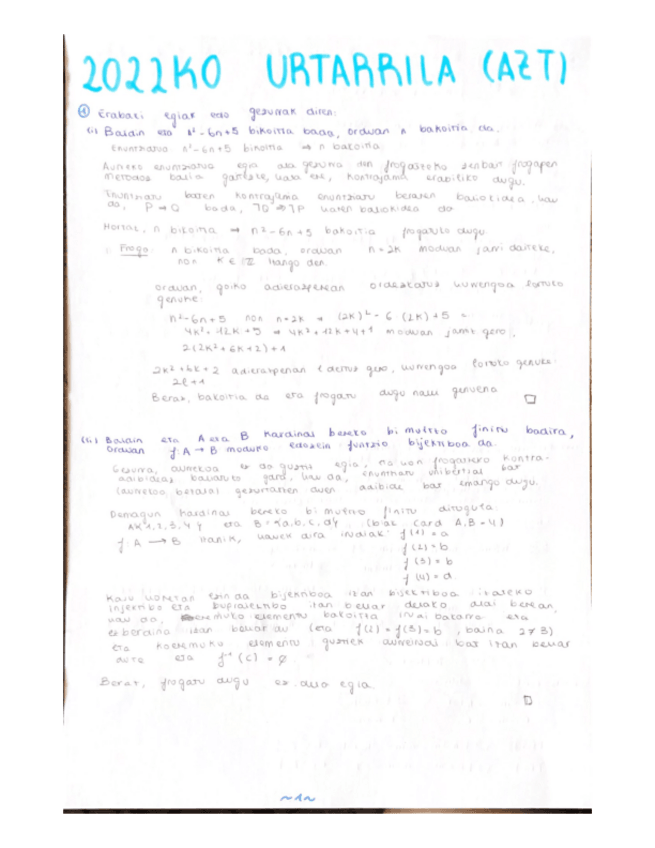 2022KO URTARRILA (AZT)
① Erabaki egiar edo gezurrak diren:
(i) Baldin eta n²-6n+5 bikoitia bada, orduan n bakoitia da.
Enuntziatua n²-6n+5 bikoitia ⇒ n bakoitia.
Aurreko enuntziatua egia ala gezurra den frogatzeko zenbait frogapen
metodoz balia gaitezke, kasu kontrajarria erabiliko dugu.
Enuntziatu baten kontrajarria enuntziatu beraren baliokidea, hau
da, P→Q bada, 7Q→7P haren baliokidea da
Hortaz, n bikoitia ⇒ n²-6n+5 bakoitia frogatuko dugu.
Froga: n bikoitia bada, orduan n=2k moduan jarri daiteke,
non k ∈ ℤ izango den.
orduan, goiko adierazpenean ordezkatuz hurrengoa lortuko
genuke:
n²-6n+5 non n=2k ⇒ (2k)²-6(2k)+5 =
4k²-12k+5 ⇒ 4k²+12k+4+1 moduan jarriz gero,
2(2k²+6k+2)+1
2k²+6k+2 adierazpenari l deituz gero, hurrengoa lortuko genuke:
2l+1
Beraz, bakoitia da eta frogatu dugu nahi genuena □
(ii) Baldin eta A eta B kardinal bereko bi multzo finitu badira,
orduan f:A→B moduko edozein funtzio bijektiboa da.
Gezurra, aurrekoa ez da guztiz egia, hau frogatzeko kontra-
adibideaz baliatuko gara, hau da, enuntziatu unibertsal bat
(aurrekoa bezala) gezurtatzen duen adibide bat emango dugu.
Demagun kardinal bereko bi multzo finitu ditugula:
A={1,2,3,4} eta B={a,b,c,d} (biak card A,B=4)
f:A→B izanik, hauek dira irudiak: f(1)=a
f(2)=b
f(3)=b
f(4)=d
Kasu honetan ezin da bijektiboa izan bijektiboa izateko
injektibo eta suprajektibo izan behar delako aldi berean,
hau da, eremuko elementu bakoitza irudi bakarra eta
ezberdina izan behar du (eta f(2)=f(3)=b, baina 2≠3)
eta koeremuko elementu guztiek aurreirudi bat izan behar
dute eta f⁻¹(c)=∅.
Beraz, frogatu dugu ez dela egia.
□
~1~